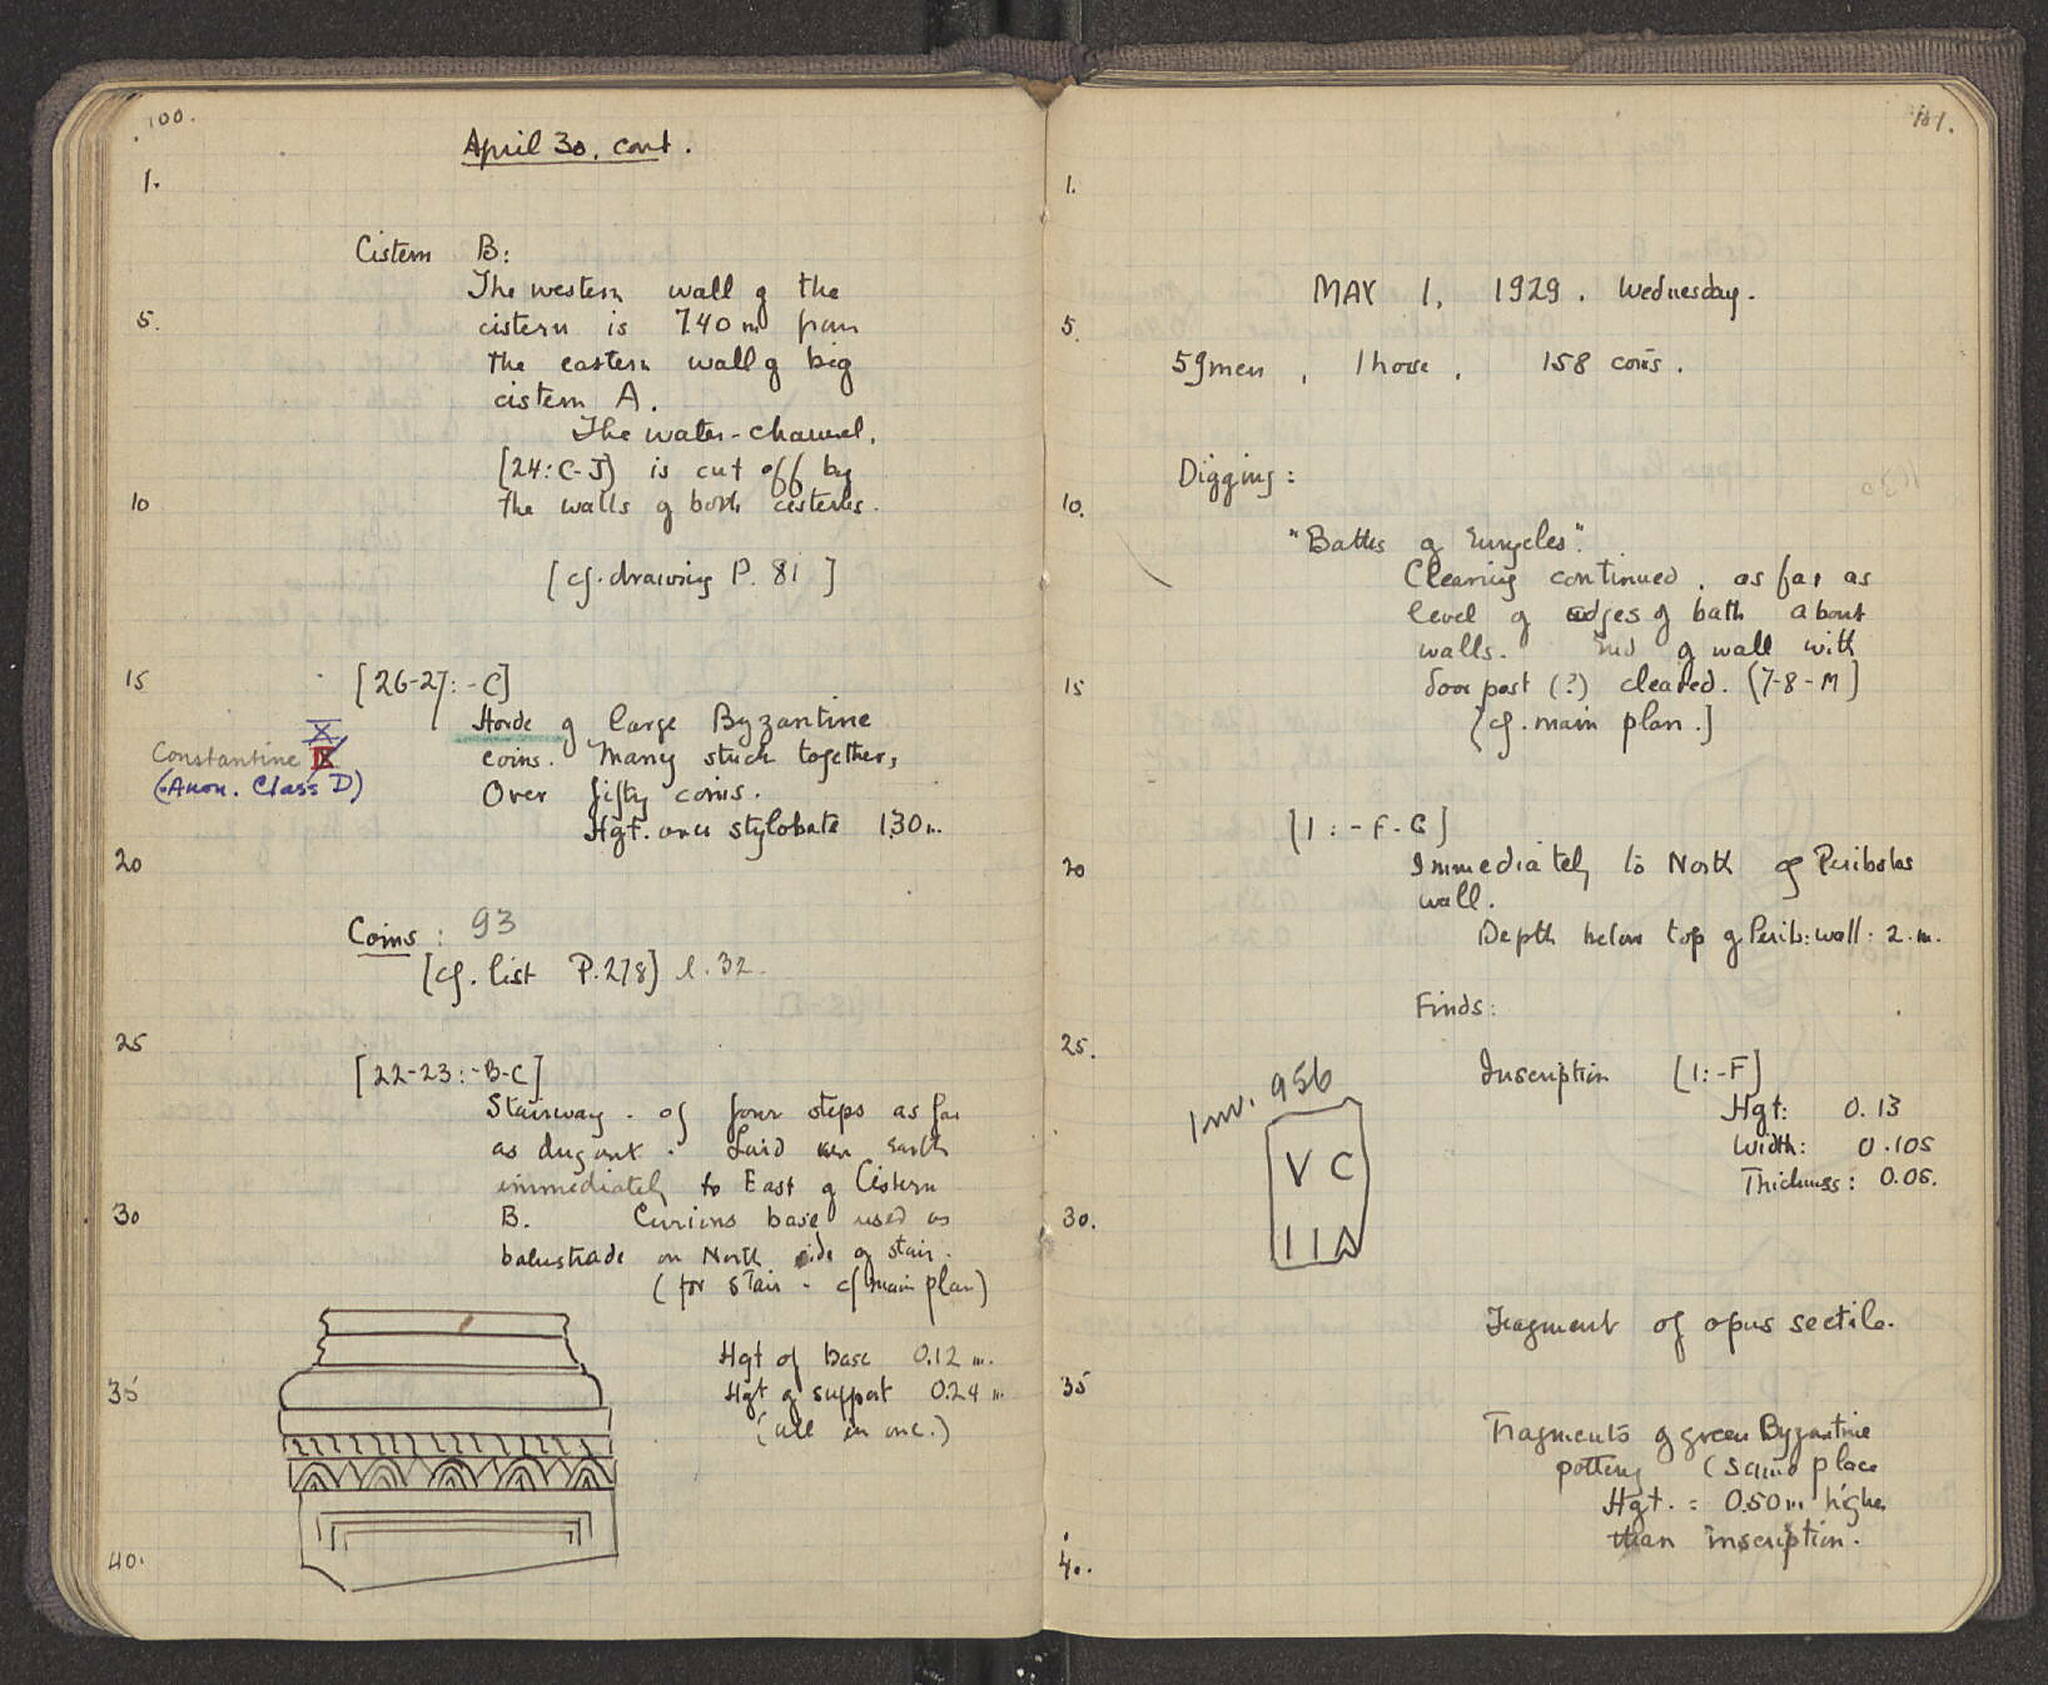 100.
April 30, cont.
1.
Cistern B:
The western wall of the
5. cistern is 7.40 m from
the eastern wall of big
cistern A.
The water-channel,
[24:C-J] is cut off by
10 the walls of both cisterns.
[cf. drawing P. 81]
15 [26-27: -C]
Horde of large Byzantine
X
Constantine IX coins. Many stuck together,
(Anon. Class D) Over fifty coins.
Hgt. over stylobate 1.30 m.
20
Coins: 93
[cf. list P. 278] l. 32.
25
[22-23: -B-C]
Stairway - of four steps as far
as dug out. Laid on Earth
immediately to East of Cistern
30 B. Curious base used as
balustrade on North side of stair.
(for stair - cf main plan)
Hgt of base 0.12 m.
35 Hgt of support 0.24 m
(all in one.)
40.
101.
1.
MAY 1, 1929. Wednesday.
5.
59 men, 1 horse, 158 coins.
Digging:
10.
"Baths of Eurycles".
Clearing continued, as far as
level of edges of bath about
walls. End of wall with
15 door post (?) cleared. (7-8-M]
[cf. main plan.]
[1: -F-G]
20 Immediately to North of Peribolos
wall.
Depth below top of Perib: wall: 2. m.
Finds:
25.
Inscription [1:-F]
Inv. 956
Hgt: 0.13
Width: 0.105
Thickness: 0.05.
V C
30.
I I A
Fragment of opus sectile.
35
Fragments of green Byzantine
pottery (Same place
Hgt. = 0.50 m higher
than inscription.
40.